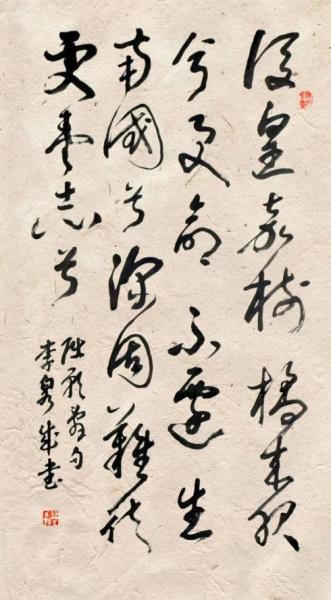 後皇嘉樹橘来服
兮受命不遷生
南國兮深固難徙
更壹志兮
句
李成書